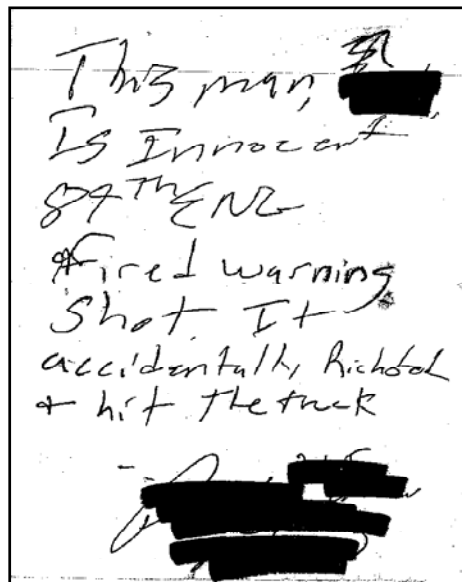 This man,
Is Innocent
84th ENG
Fired warning
Shot It
accidentally Richoted
+ hit the truck